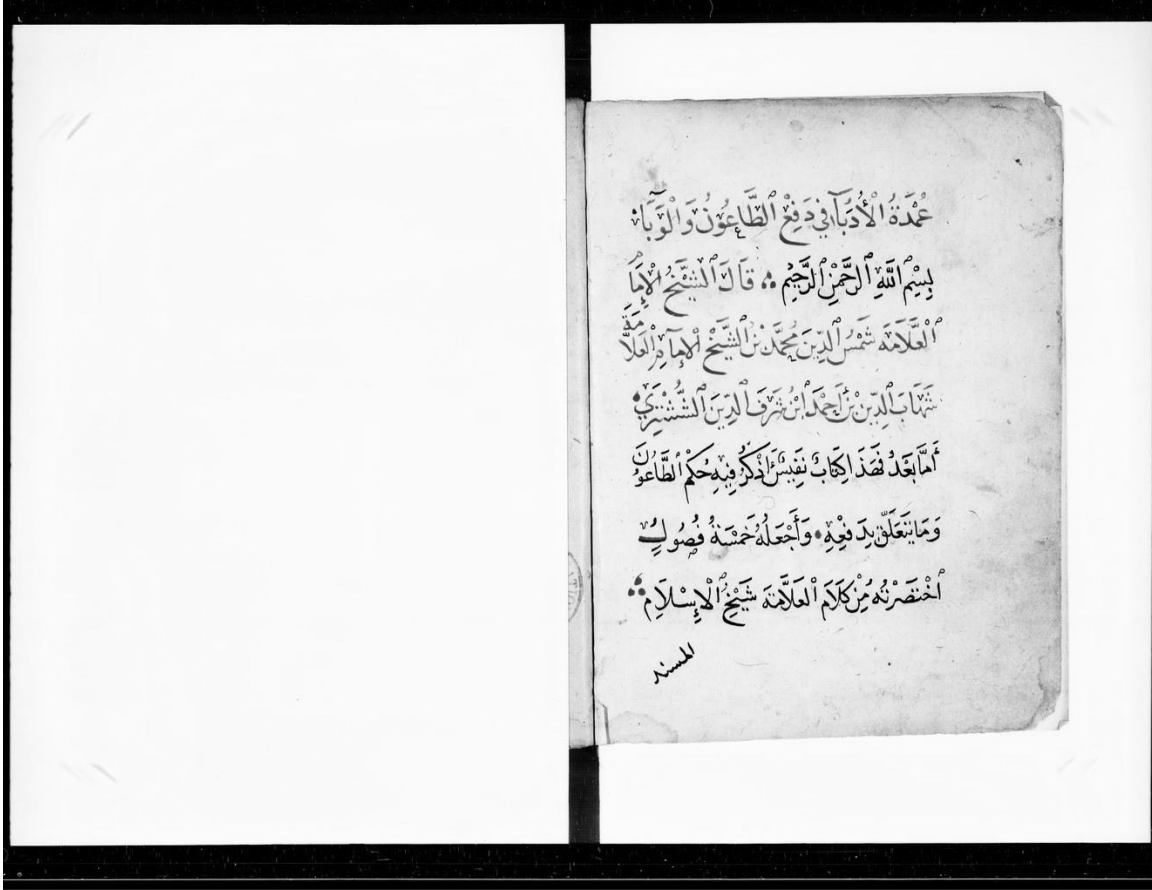 عُمْدَةُ الْأُدَبَآءِ فِي دَفْعِ الطَّاعُونِ وَالْوَبَآءِ
بِسْمِ اللَّهِ الرَّحْمَنِ الرَّحِيمِ قَالَ الشَّيْخُ الْإِمَامُ
الْعَلَّامَةُ شَمْسُ الدِّينِ مُحَمَّدُ بْنُ الشَّيْخِ الْإِمَامِ الْعَلَّامَةِ
شَهَابِ الدِّينِ بْنِ أَحْمَدَ ابْنِ شَرَفِ الدِّينِ الشُّشْتَرِيِّ
أَمَّا بَعْدُ فَهَذَا كِتَابٌ نَفِيسٌ أَذْكُرُ فِيهِ حُكْمَ الطَّاعُونِ
وَمَا يَتَعَلَّقُ بِدَفْعِهِ وَأَجْعَلُهُ خَمْسَةُ فُصُولٍ
اخْتَصَرْتُهُ مِنْ كَلَامِ الْعَلَّامَةِ شَيْخِ الْإِسْلَامِ
المسند